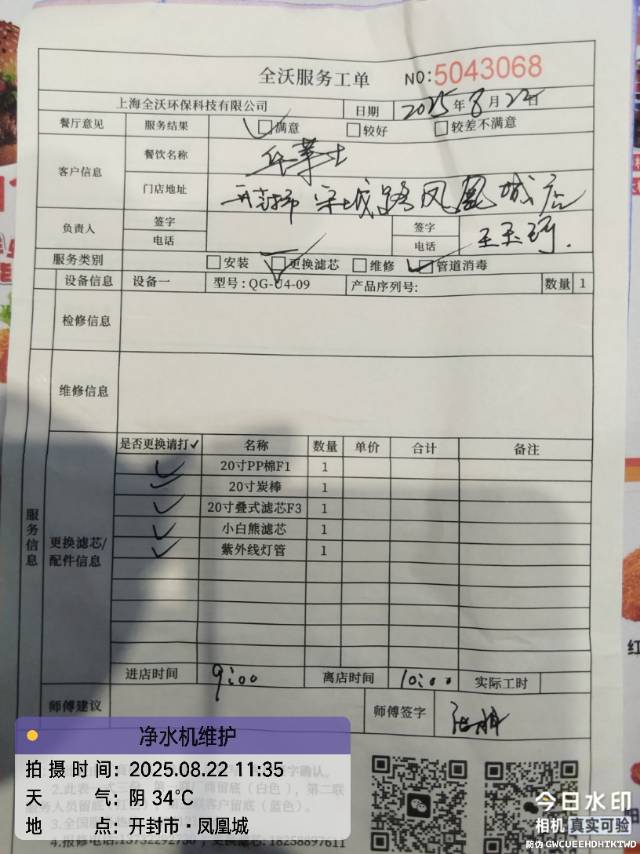 全沃服务工单 NO:5043068
上海全沃环保科技有限公司 日期 2025年8月22日
餐厅意见 服务结果 满意 较好 较差不满意
客户信息 餐饮名称
门店地址 开封市 宋城路凤凰城店
负责人 签字 签字
电话 电话
服务类别 安装 更换滤芯 维修 管道消毒
设备信息 设备一 型号:QG-U4-09 产品序列号: 数量 1
检修信息
维修信息
服务信息
更换滤芯/配件信息
是否更换请打✓ 名称 数量 单价 合计 备注
✓ 20寸PP棉F1 1
✓ 20寸炭棒 1
✓ 20寸叠式滤芯F3 1
✓ 小白熊滤芯 1
✓ 紫外线灯管 1
进店时间 9:00 离店时间 10:00 实际工时
师傅建议 师傅签字
净水机维护
拍摄时间: 2025.08.22 11:35
天气: 阴 34℃
地点: 开封市·凤凰城
今日水印
相机 真实可验
防伪 GWCUEEHDHTKTWD